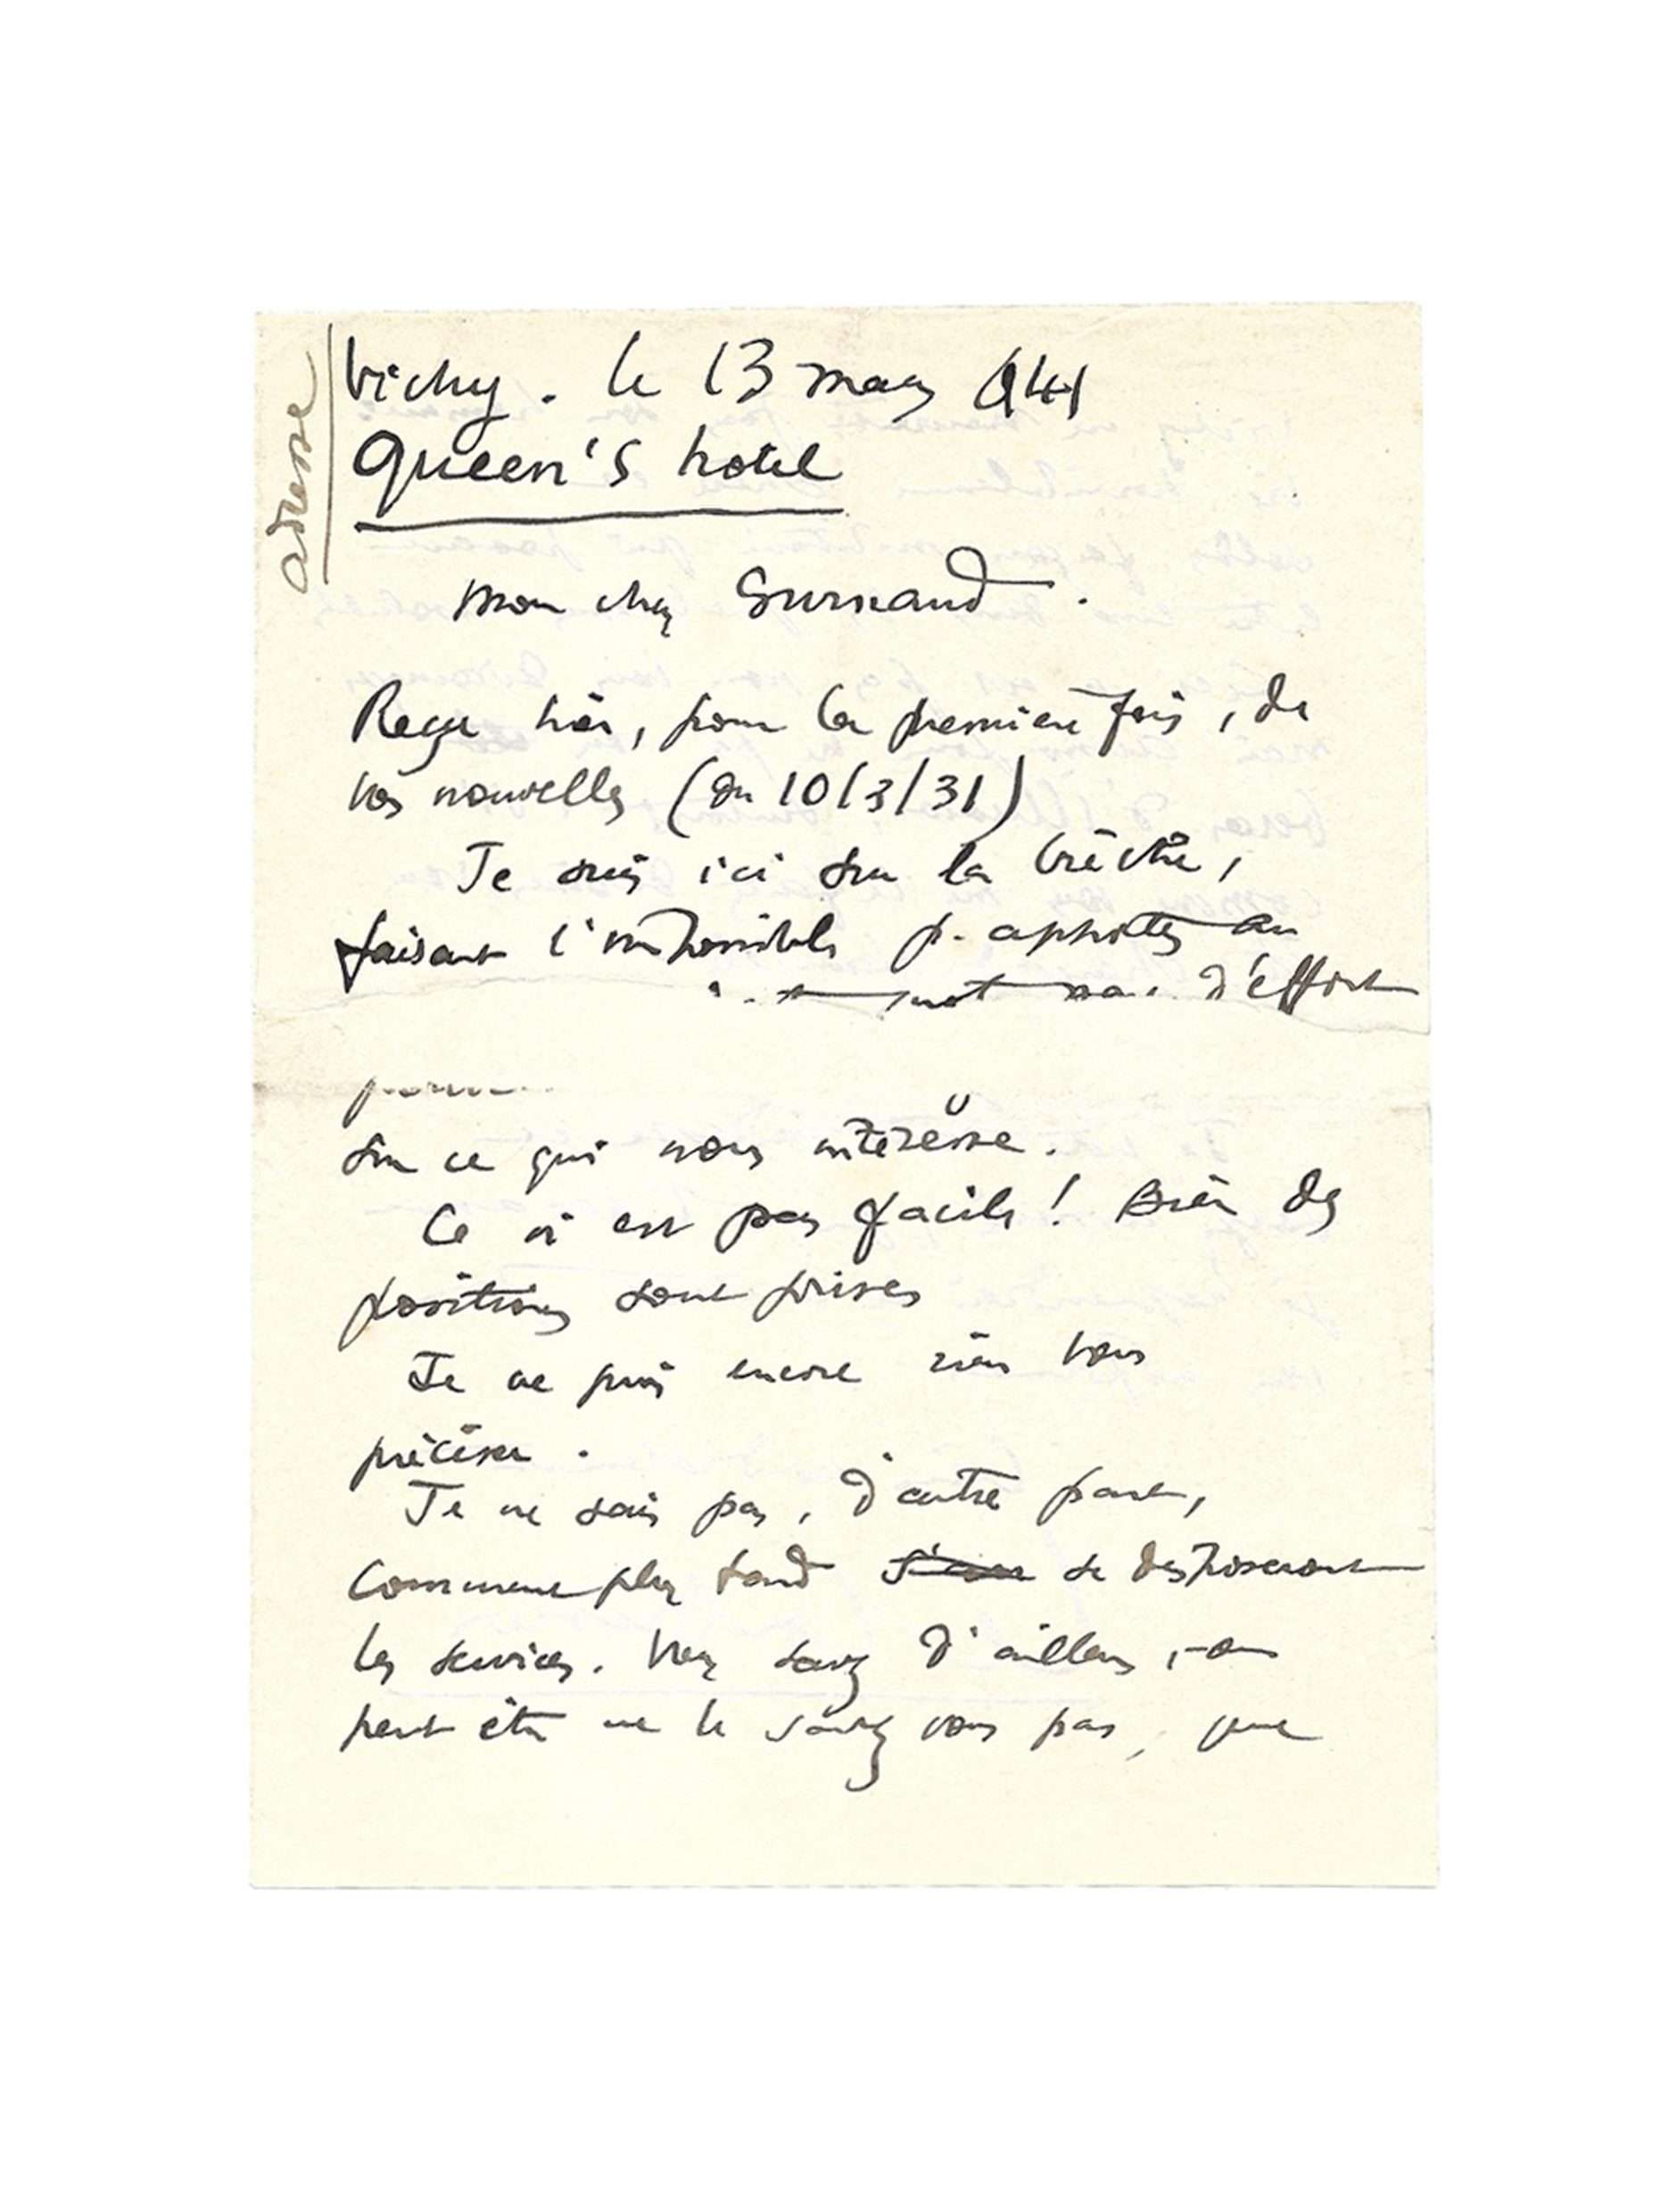 adresse
Vichy. le 13 mars 1941
Queen's hotel
Mon cher Gurnaud.
Reçu hier, pour la première fois, de
vos nouvelles (du 10/3/31)
Je suis ici sur la brèche,
faisant l'impossible p.
d'effort
sur ce qui nous intéresse.
Ce n'est pas facile ! Bien des
positions sont prises
Je ne puis encore rien vous
préciser.
Je ne sais pas, d'autre part,
comment plus tard se disposeront
les services. Vous savez d'ailleurs, ou
peut être ne le savez vous pas, que